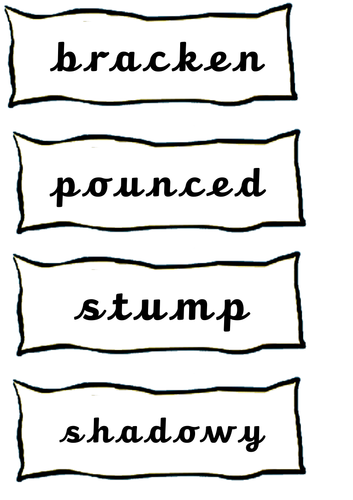 bracken
pounced
stump
shadowy